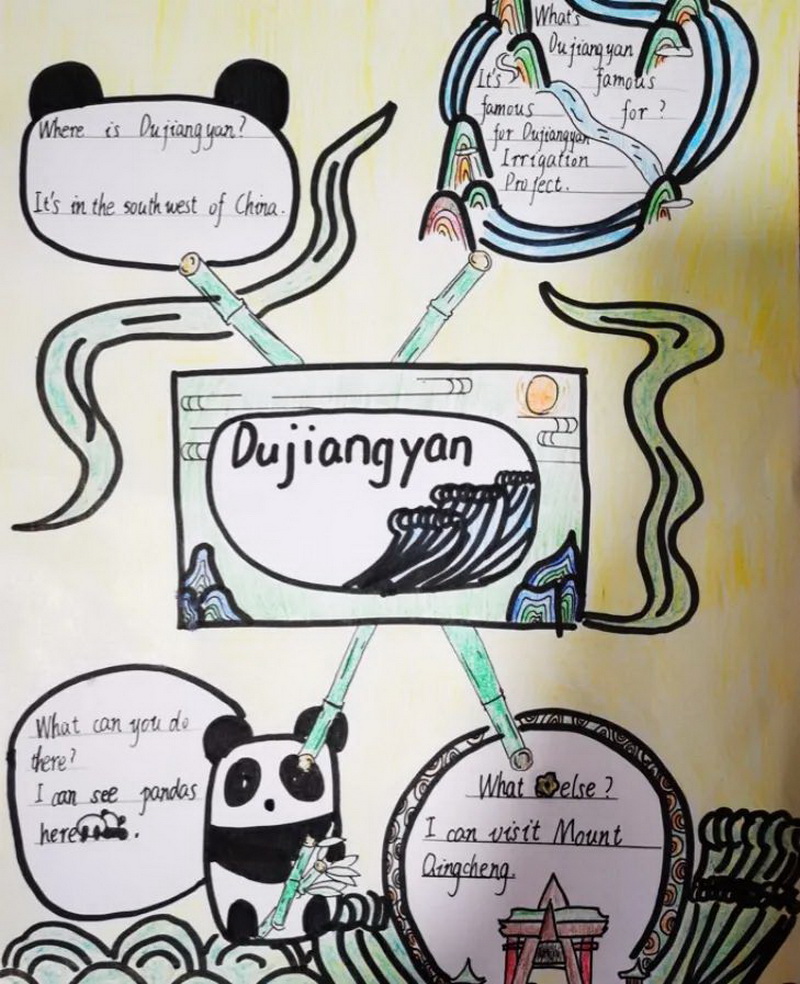 Where is Dujiangyan?
It's in the southwest of China.
What's
Dujiangyan
It's famous
famous for?
for Dujiangyan
Irrigation
Project.
Dujiangyan
What can you do
there?
I can see pandas
here .
What else?
I can visit Mount
Qingcheng.